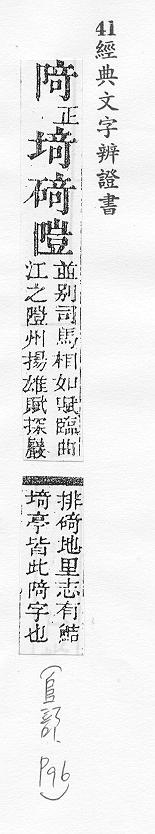 41經典文字辨證書
陭正埼碕隑
並別司馬相如賦臨曲
江之隑州揚雄賦探巖
排碕地里志有鮚
埼亭皆此陭字也
P96